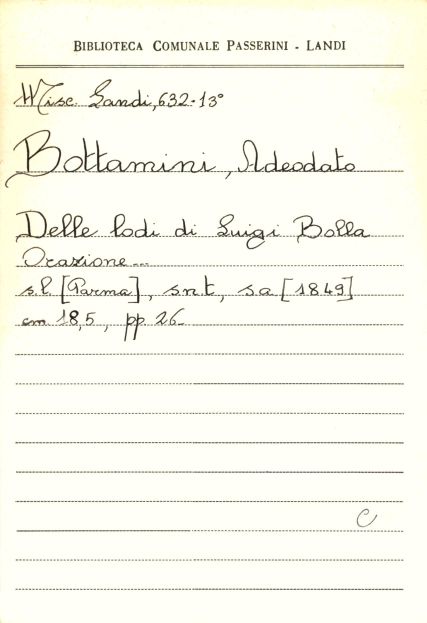 BIBLIOTECA COMUNALE PASSERINI - LANDI
Misc. Landi, 632.13°
Bottamini, Adeodato
Delle lodi di Luigi Bolla
Orazione...
s.l. [Parma], s.n.t, s.a [1849]
cm 18,5, pp. 26.
C